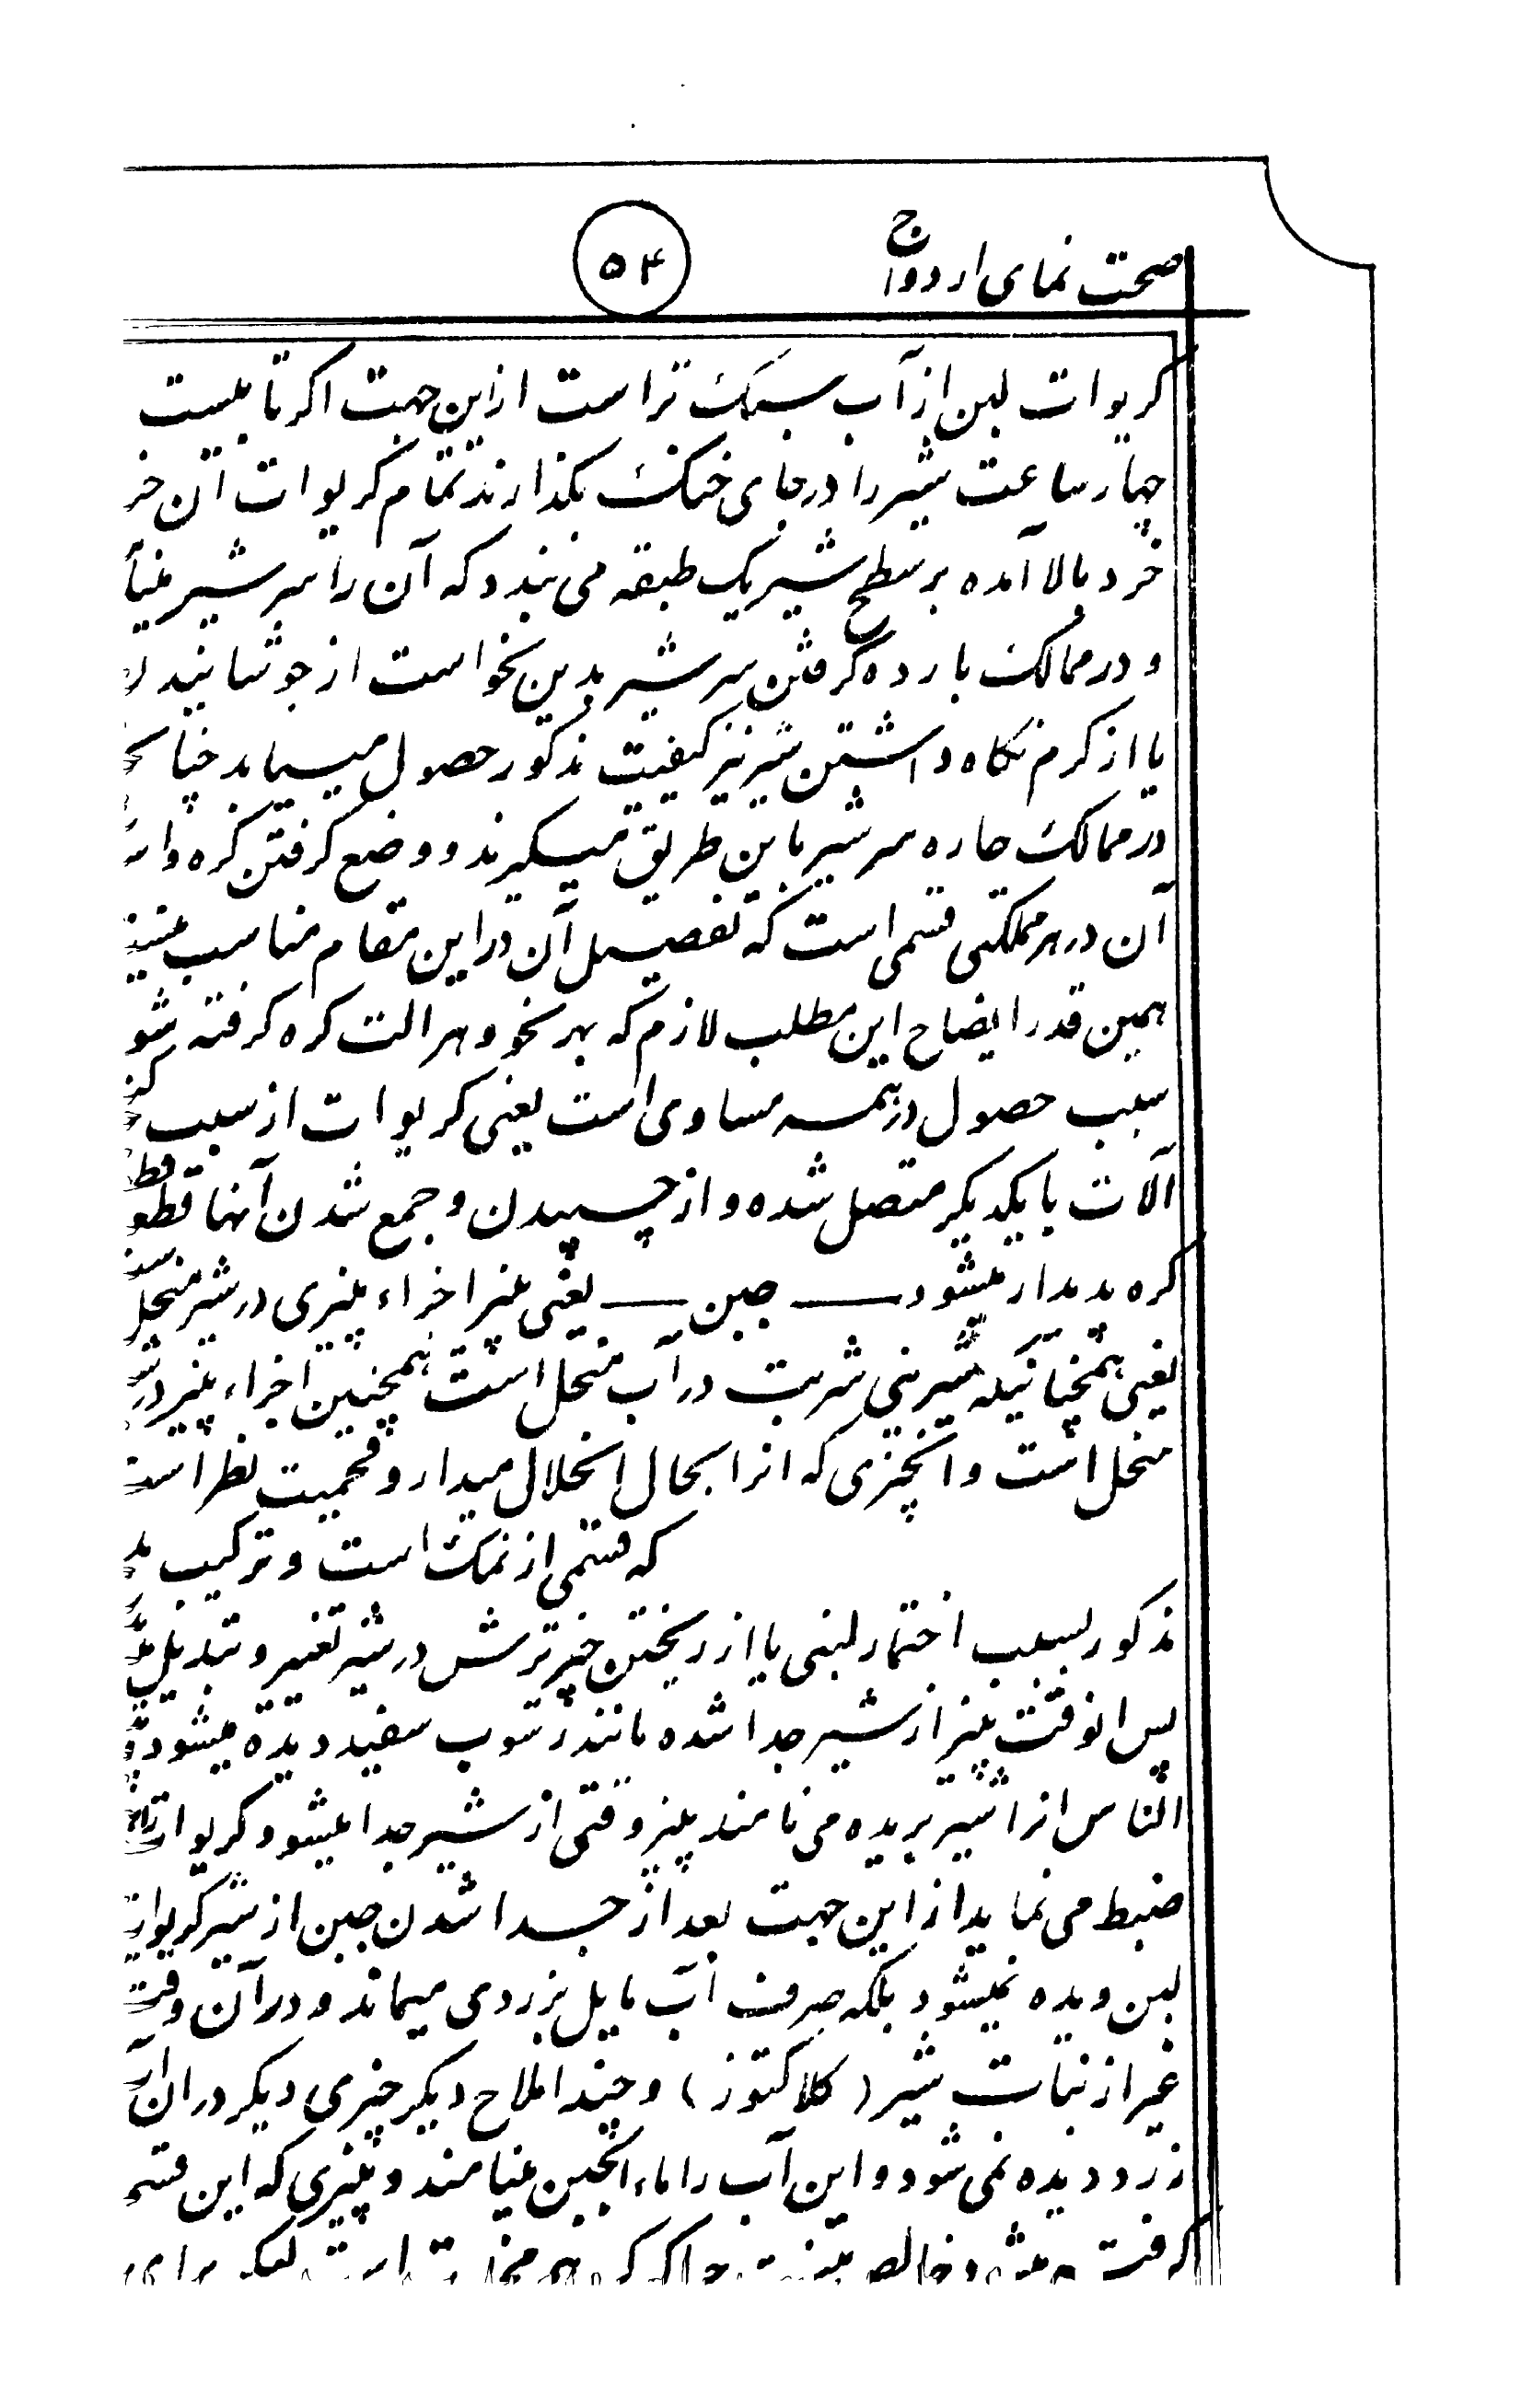 صحت نمای ازدواج
۵۴
کریوات لبن از آب سبک تر است از این جهت اگر تا بیست
چهار ساعت شیر را در جای خنک بگذارند تمام کریوات آن خر
خرد بالا آمده بر سطح شیر یک طبقه می بندد که آن را سر شیر مینا
و در ممالک بارده گرفتن سر شیر بدین نحو است از جوشانیدن
یا از گرم نگاه داشتن شیر نیز کیفیت مذکور حصول میآید چنا
در ممالک حاره سر شیر باین طریق میگیرند و وضع گرفتن کره و
آن در هر مملکتی قسمی است که تفصیل آن در این مقام مناسب
همین قدر ایضاح این مطلب لازم که بهر نحو و هر الت کره گرفته شو
سبب حصول در همه مساوی است یعنی کریوات از سبب
آلات با یکدیگر متصل شده و از چسپیدن و جمع شدن آنها
کره پدیدار میشود — جبن — یعنی پنیر اجزاء پنیری در شیر منحل
یعنی همچنانیکه شیرینی شربت در آب منحل است همچنین اجزاء پنیر در
منحل است و انچیزی که انرا بحال انحلال میدارد قحمیت نظر است
که قسمی از نمک است و ترکیب
مذکور بسبب اختمار لبنی یا از ریختن چیز ترش در شیر تغییر و تبدیل
پس انوقت پنیر از شیر جدا شده مانند رسوب سفید دیده میشود
الناس انرا شیر بریده می نامند پنیر وقتی از شیر جدا میشود کریوات
ضبط می نماید از این جهت بعد از جدا شدن جبن از شیر کریوات
لبن دیده نمیشود بلکه صرف آب مایل بزردی میماند و در آن وقت
غیر از نبات شیر ( کلاکتوز ) و چند املاح دیگر چیزی دیگر در ان
زرد دیده نمی شود و این آب را ماء الجبن مینامند و پنیری که این قسم
گرفته میشود خالص نیست